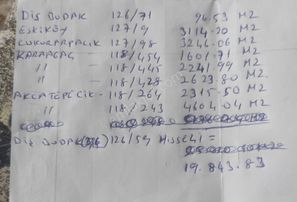 DİŞ BUDAK 126/71 94.53 M2
ESKİKÖY 127/9 3114.20 M2
ÇUKURARPALIK 127/98 3246.06 M2
KARAAĞAÇ 118/454 1601.71 M2
" 118/445 2241.99 M2
" 118/428 2623.80 M2
AKÇATEPECİK- 118/264 2315.50 M2
" 118/243 4604.04 M2
DİŞ BUDAK 126/59 HİSSELİ =
19.843.83